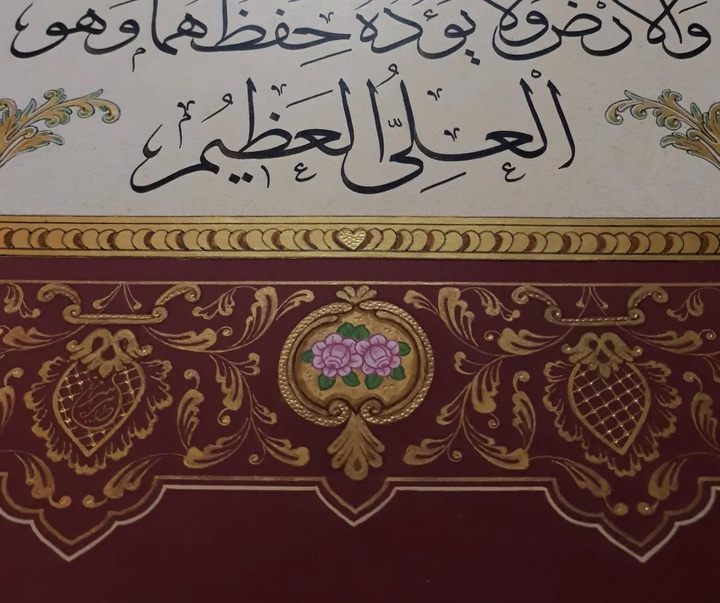 وَالْاَرْضَ وَلَا يَؤُدُهُ حِفْظُهُمَا وَهُوَ
الْعَلِىُّ الْعَظيمُ